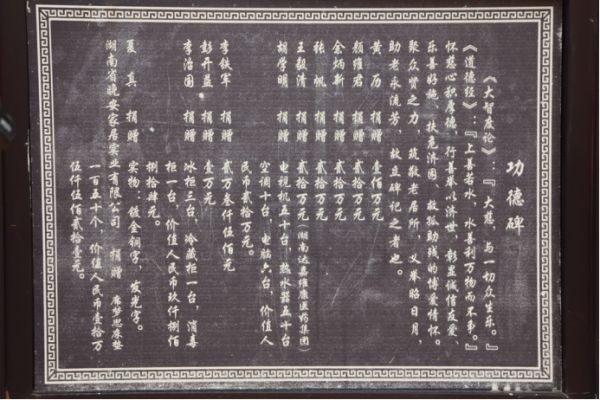 功德碑
《大智度论》：『大慈，与一切众生乐。』
《道德经》：『上善若水，水善利万物而不争。』
怀慈心积厚德，行善举以济世，彰显诚信友爱、
乐善好施、扶危济困、敬孤助残的博爱情怀。
聚众贤之力，筑敬老居所，义举昭日月，
助老永流芳，故立碑记之者也。
黄历 捐赠 壹佰万元
颜维君 捐赠 贰拾万元
金炳新 捐赠 贰拾万元
张帆 捐赠 贰拾万元
王毅清 捐赠 贰拾万元（湖南达嘉维康医药集团）
胡学明 捐赠 电视机五十台，热水器五十台
空调十台，电脑六台，价值人
民币贰拾万元。
李铁军 捐赠 贰万叁仟伍佰元
彭开益 捐赠 壹万元
李治国 捐赠 冰柜三台，冷藏柜一台，消毒
柜一台，价值人民币玖仟捌佰
捌拾肆元。
夏真 捐赠 实物：镀金铜字，发光字。
湖南省晚安家居实业有限公司 捐赠 席梦思床垫
一百五十个，价值人民币壹拾万
伍仟伍佰贰拾壹元。